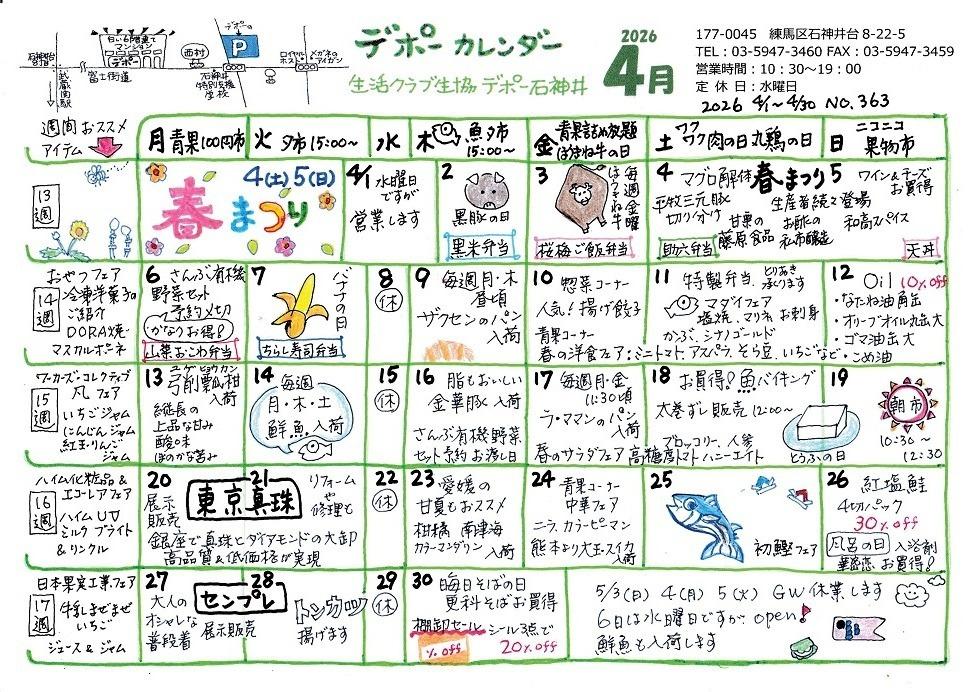 白い6階建て
マンション
デポー
西村
デポーの
P
ロイヤル
ホスト
メガネの
アイガン
石神井台
富士街道
石神井
特別支援
学校
武蔵関駅
デポー カレンダー
生活クラブ生協 デポー石神井
2026
4月
177-0045 練馬区石神井台8-22-5
TEL：03-5947-3460 FAX：03-5947-3459
営業時間：10：30～19：00
定休日：水曜日
2026 4/1～4/30 NO.363
週間おススメ
アイテム
月 青果100円市
火 夕市15:00～
水
木 魚夕市
15:00～
金 青果詰め放題
ほうきね牛の日
土 ワクワク肉の日 丸鶏の日
日 ニコニコ
果物市
13週
4(土)5(日)
春まつり
4/1 水曜日
ですが
営業します
2
黒豚の日
黒米弁当
3
毎週金曜
はほうきね牛
桜梅ご飯弁当
4 マグロ解体
平牧三元豚
切り分け
助六弁当
春まつり
生産者続々登場
甘栗の お酢の 和高スパイス
藤原食品 私市醸造
5 ワイン&チーズ
お買得
天丼
14週
おやつフェア
冷凍洋菓子の
ご紹介
DORA焼・
マスカルポーネ
6 さんぶ有機
野菜セット
予約〆切
かなりお得！
山菜おこわ弁当
7
バナナの日
ちらし寿司弁当
8
休
9 毎週月・木
昼頃
ザクセンのパン
入荷
10 惣菜コーナー
人気！揚げ餃子
青果コーナー
春の洋食フェア：ミニトマト、アスパラ、そら豆、いちごなど
11 特製弁当 とりおき
承ります
マダイフェア
塩焼、マリネ、お刺身
かぶ、シナノゴールド
12 Oil 10%off
・なたね油角缶
・オリーブオイル丸缶大
・ゴマ油缶大
・こめ油
15週
ワーカーズ・コレクティブ
凡 フェア
いちごジャム
にんじんジャム
紅玉りんご
ジャム
13 ユゲ ヒョウカン
弓削瓢柑
入荷
縦長の
上品な甘み
酸味
ほのかな苦み
14 毎週
月・木・土
鮮魚入荷
15
休
16 脂もおいしい
金華豚入荷
さんぶ有機野菜
セット予約お渡し日
17 毎週月・金
11:30頃
ラ・ママンのパン
入荷
春のサラダフェア
18 お買得！魚バイキング
太巻ずし販売 12:00～
ブロッコリー、人参
高糖度トマトハニーエイト
とうふの日
19
朝市
10:30～
12:30
16週
ハイム化粧品&
エコーレアフェア
ハイムUV
ミルク ブライト
&リンクル
20
展示
販売
21
東京真珠
リフォーム
や
修理も
銀座で真珠とダイアモンドの大卸
高品質&低価格が実現
22
休
23 愛媛の
甘夏もおススメ
柑橘 南津海
カラーマンダリン 入荷
24 青果コーナー
中華フェア
ニラ、カラーピーマン
熊本より大玉スイカ
入荷
25
初鰹フェア
26 紅塩鮭
4切パック
30%off
風呂の日 入浴剤
華密恋 お買得！
17週
日本果実工業フェア
牛乳まぜまぜ
いちご
ジュース&ジャム
27
大人の
オシャレな
普段着
28
センプレ
展示販売
トンカツ
揚げます
29
休
30 晦日そばの日
更科そばお買得
棚卸セール シール3点で
%off 20%off
5/3(日) 4(月) 5(火) GW休業します
6日は水曜日ですが、open！
鮮魚も入荷します